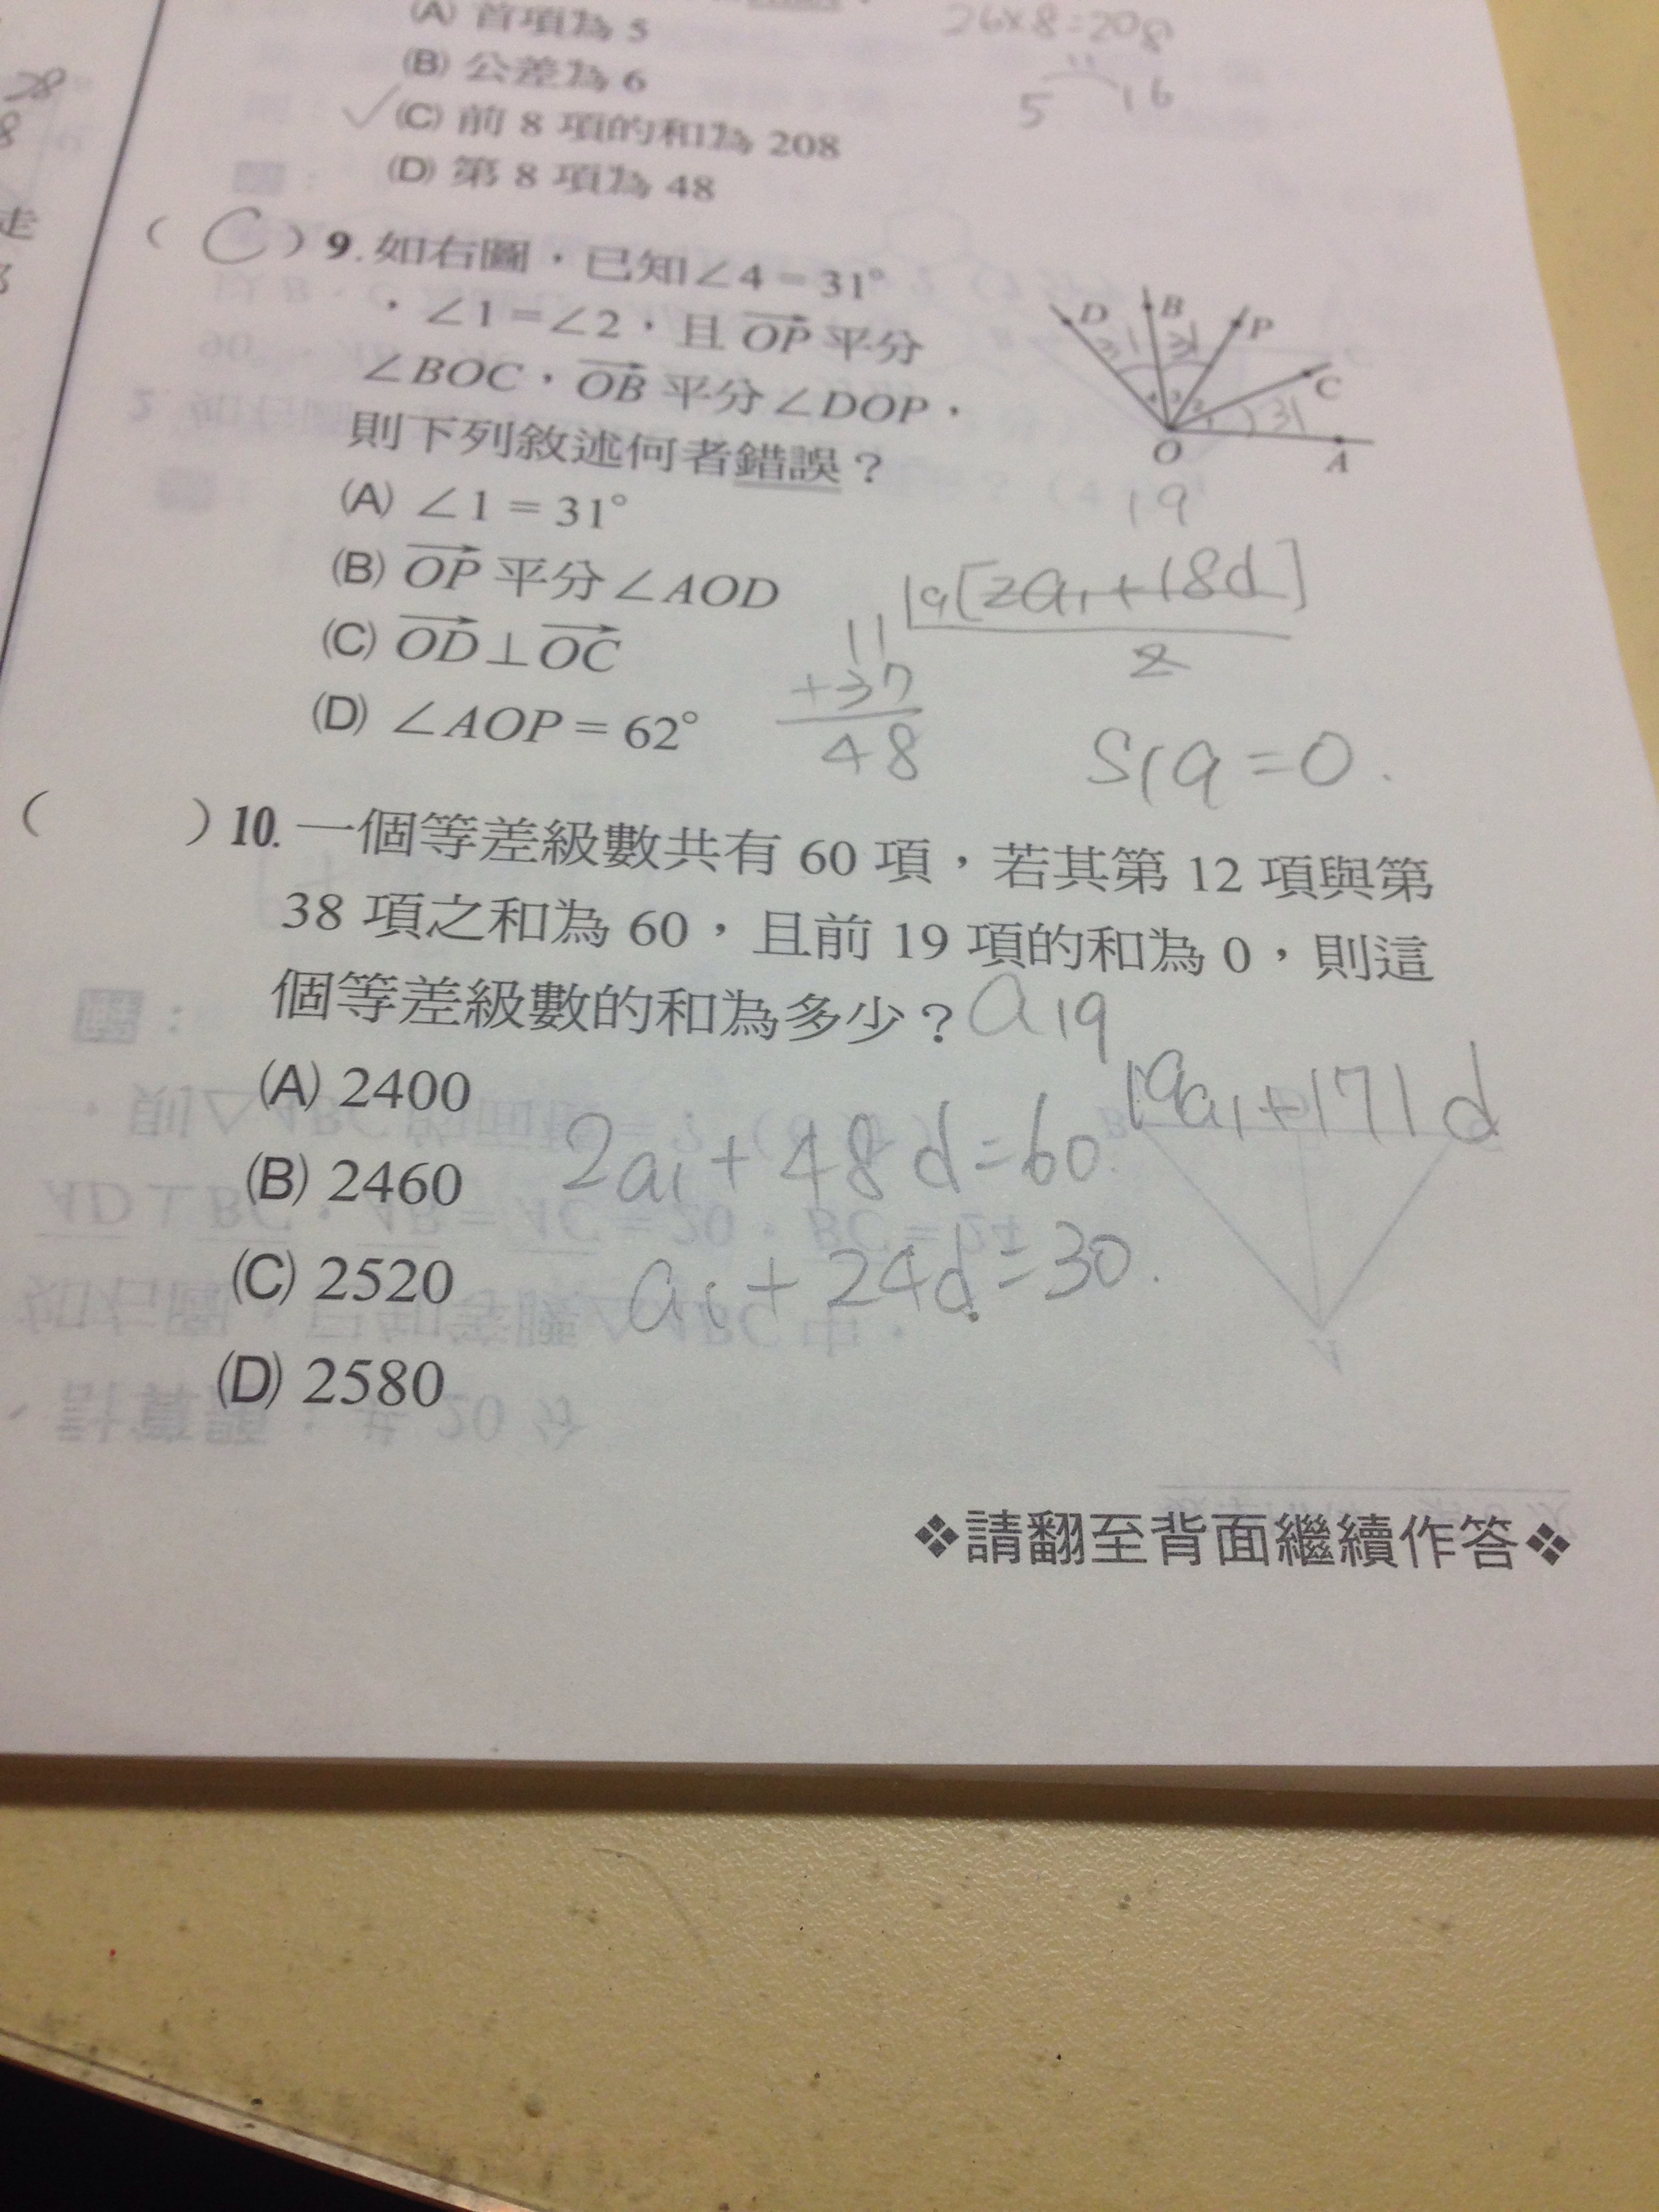 (A) 首項為 5
26×8=208
(B) 公差為 6
11
5 16
28
8
(C) 前 8 項的和為 208
(D) 第 8 項為 48
走
( C ) 9. 如右圖，已知∠4=31°
，∠1=∠2，且 OP 平分
∠BOC，OB 平分∠DOP，
則下列敘述何者錯誤？
D B P C O A
31 31 31
4 3 2 1
(A) ∠1 = 31°
19
(B) OP 平分∠AOD
19[2a1+18d]
2
(C) OD⊥OC
11
+37
48
(D) ∠AOP = 62°
S19=0.
( ) 10. 一個等差級數共有 60 項，若其第 12 項與第
38 項之和為 60，且前 19 項的和為 0，則這
個等差級數的和為多少？
a19
(A) 2400
19a1+171d
(B) 2460
2a1+48d=60.
(C) 2520
a1+24d=30.
(D) 2580
❖請翻至背面繼續作答❖